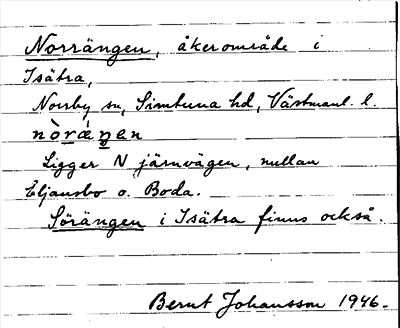 Norrängen, åkerområde i
Isätra,
Norrby sn, Simtuna hd, Västmanl. l.
nò̱ráŋen
Ligger N järnvägen, mellan
Eljansbo o. Boda.
Sörängen i Isätra finns också.
Bernt Johansson 1946.